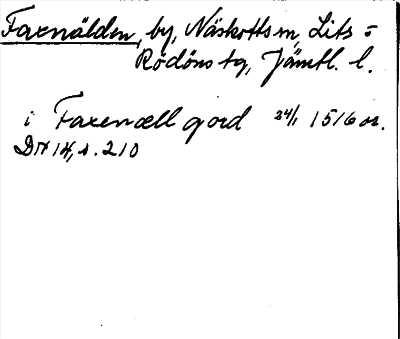 Faxnälden, by, Näskotts sn, Lits o
Rödöns tg, Jämtl. l.
i Faxenæll gord 24/1 1516 or.
DN 14, s. 210